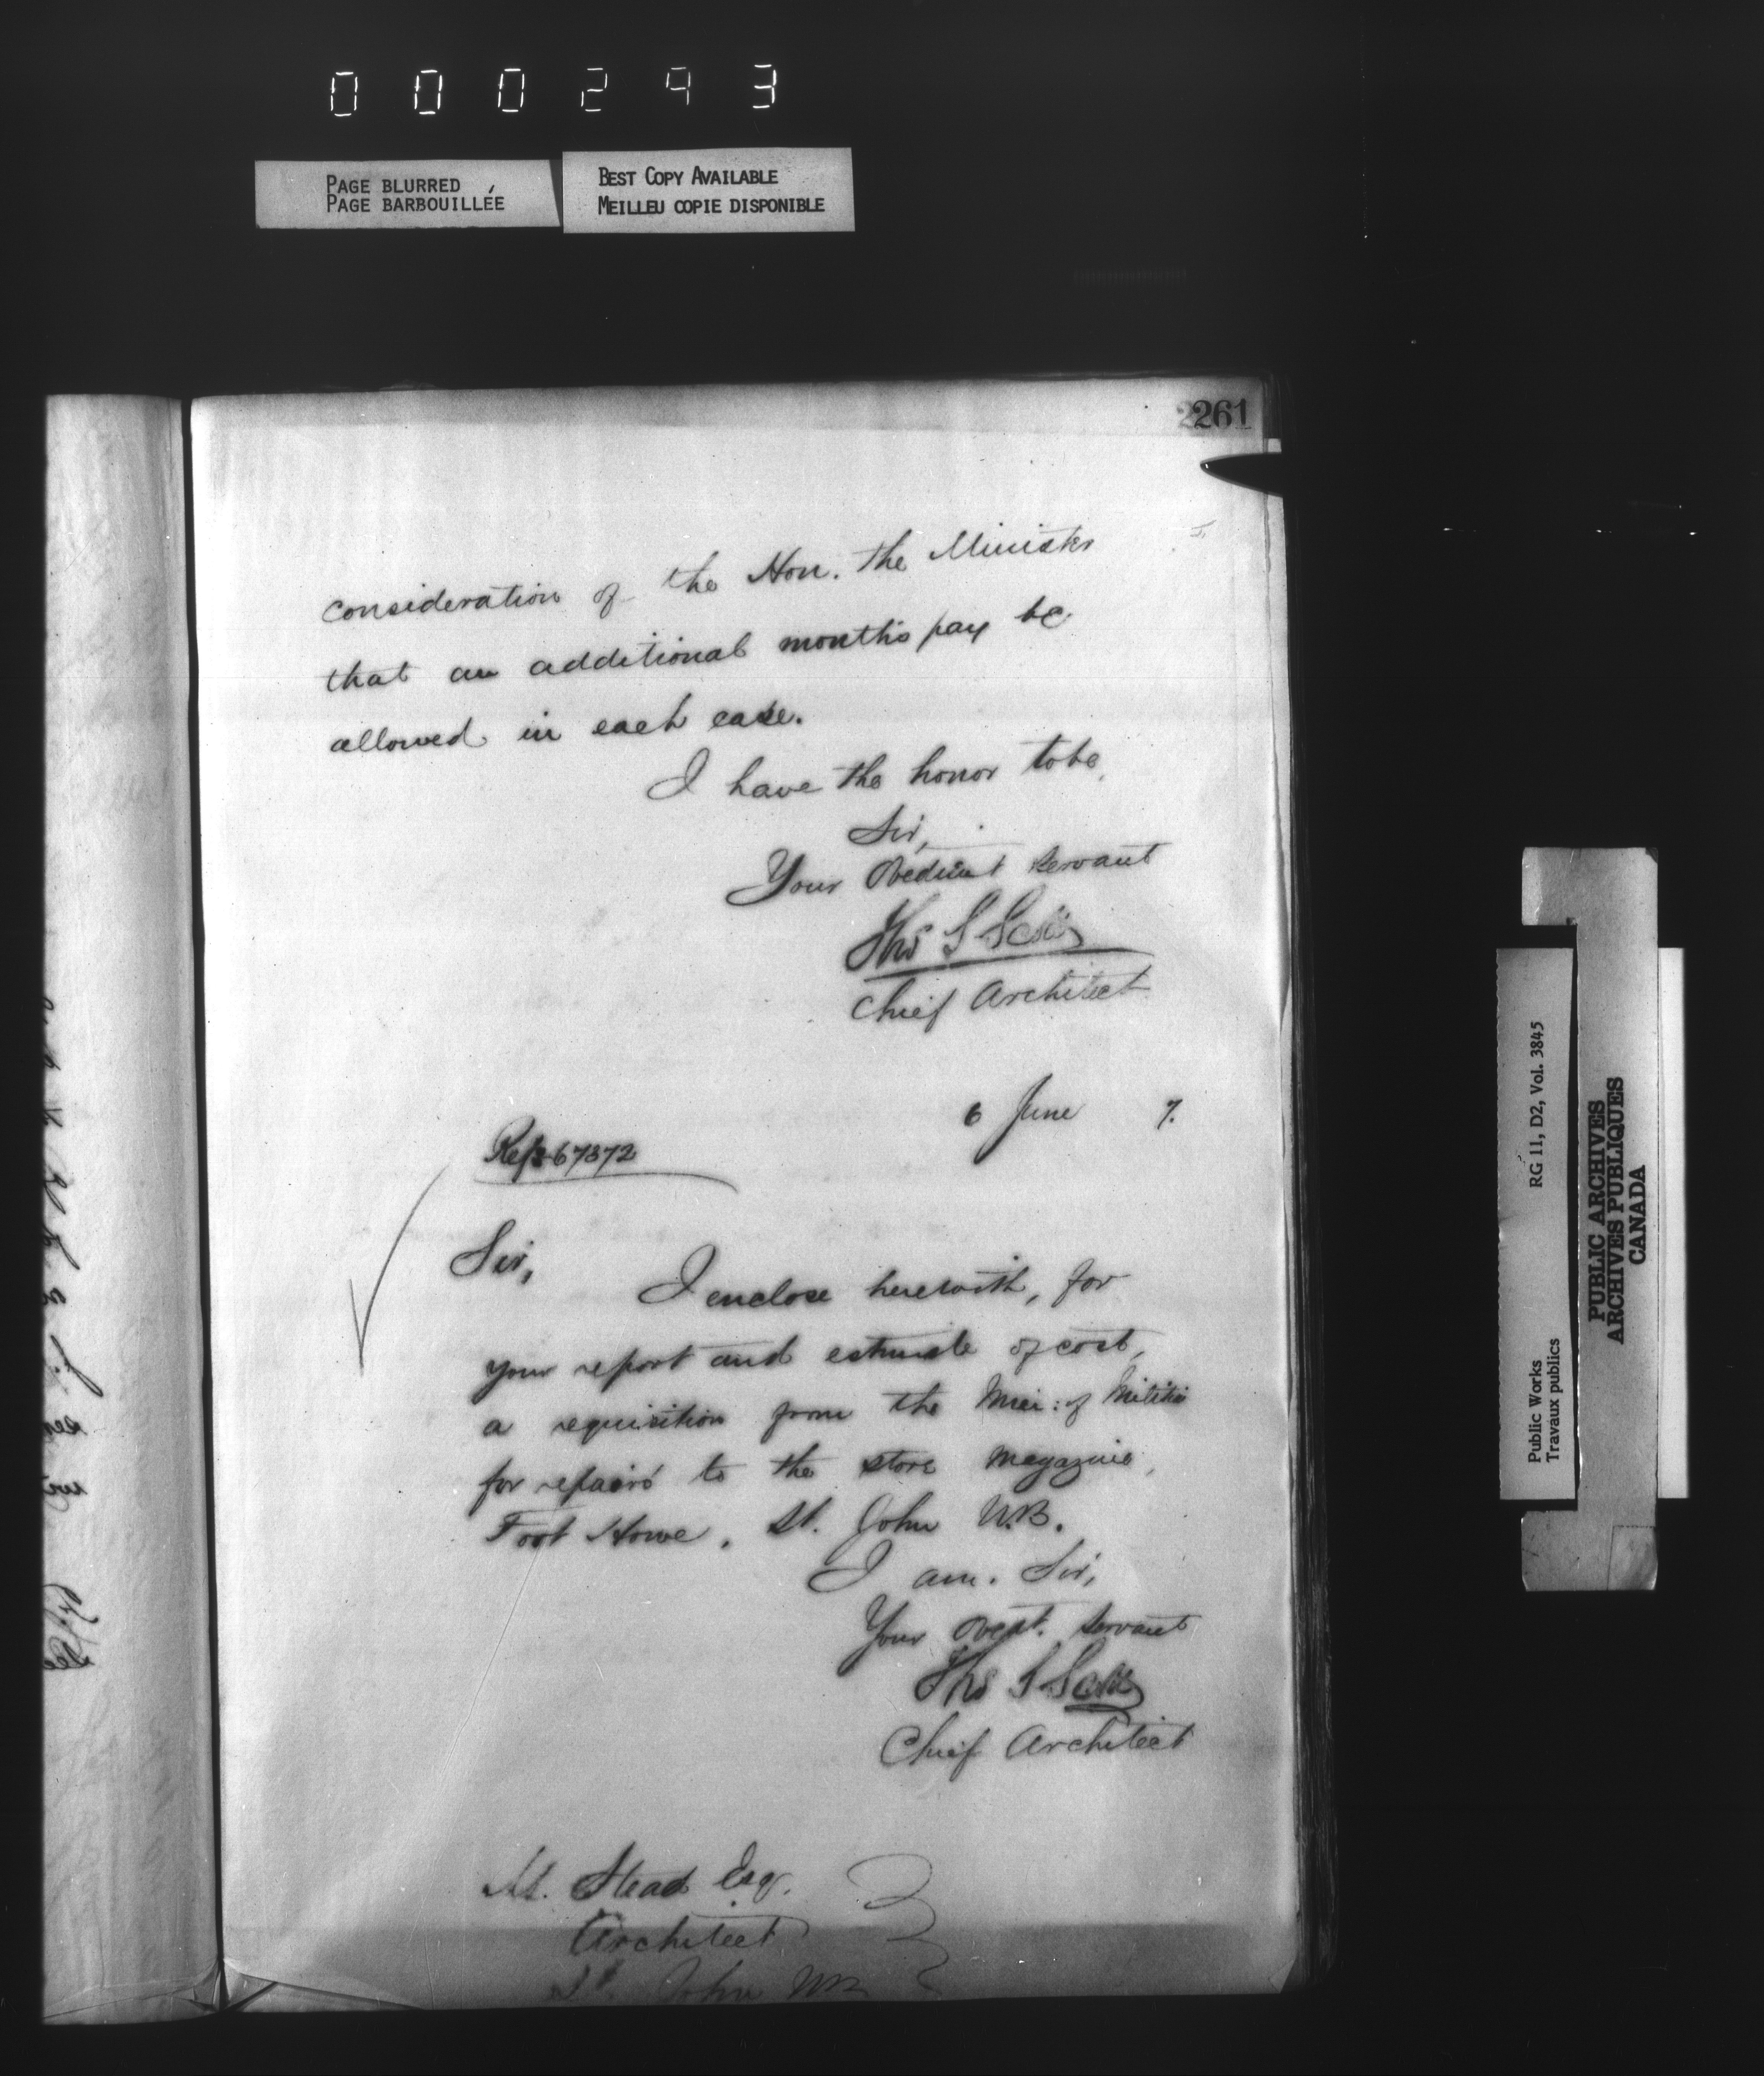 000293
PAGE BLURRED
PAGE BARBOUILLÉE
BEST COPY AVAILABLE
MEILLEU COPIE DISPONIBLE
261
consideration of the Hon. the Minister
that an additional months pay be
allowed in each case.
I have the honor to be,
Sir,
Your Obedient Servant
Thos S Scott
Chief Architect
6 June 7.
Ref 67372
Sir,
I enclose herewith, for
your report and estimate of cost,
a requisition from the Min: of Militia
for repairs to the store magazine,
Fort Howe, St. John N.B.
I am. Sir,
Your Obedt. Servant
Thos S Scott
Chief Architect
M. Stead Esq.
Architect
St. John NB
Public Works
Travaux publics
RG 11, D2, Vol. 3845
PUBLIC ARCHIVES
ARCHIVES PUBLIQUES
CANADA